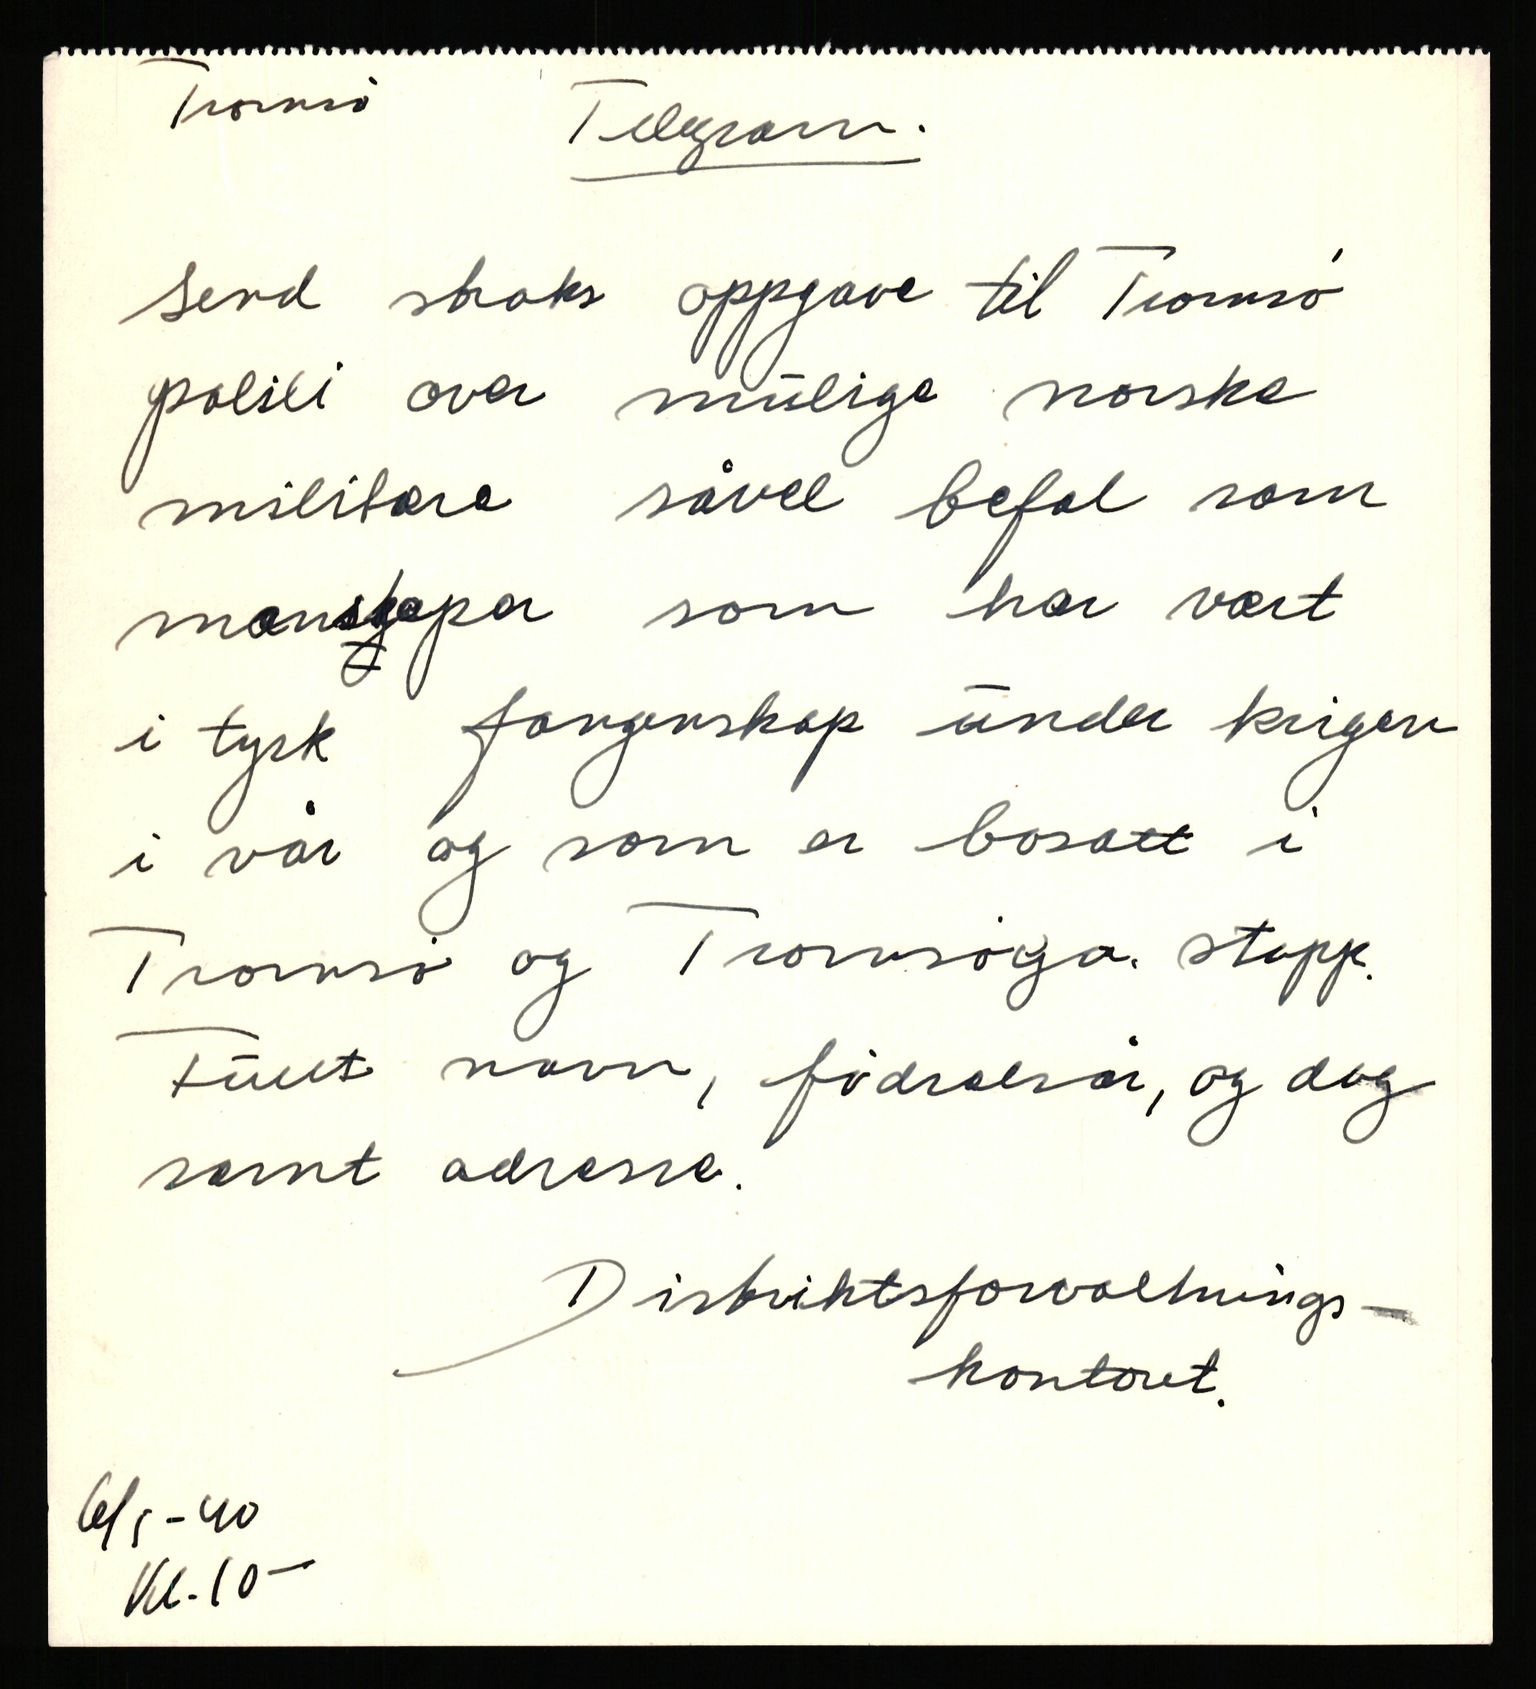 Tromsö
Telegram.
Send straks oppgave til Tromsö
politi over mulige norske
militære såvel befal som
manskaper som har vært
i tysk fangenskap under krigen
i vår og som er bosatt i
Tromsö og Tromsöya. stopp.
Fullt navn, födselsår, og dag
samt adresse.
Distriktsforvaltnings-
kontoret.
Kl. 10-